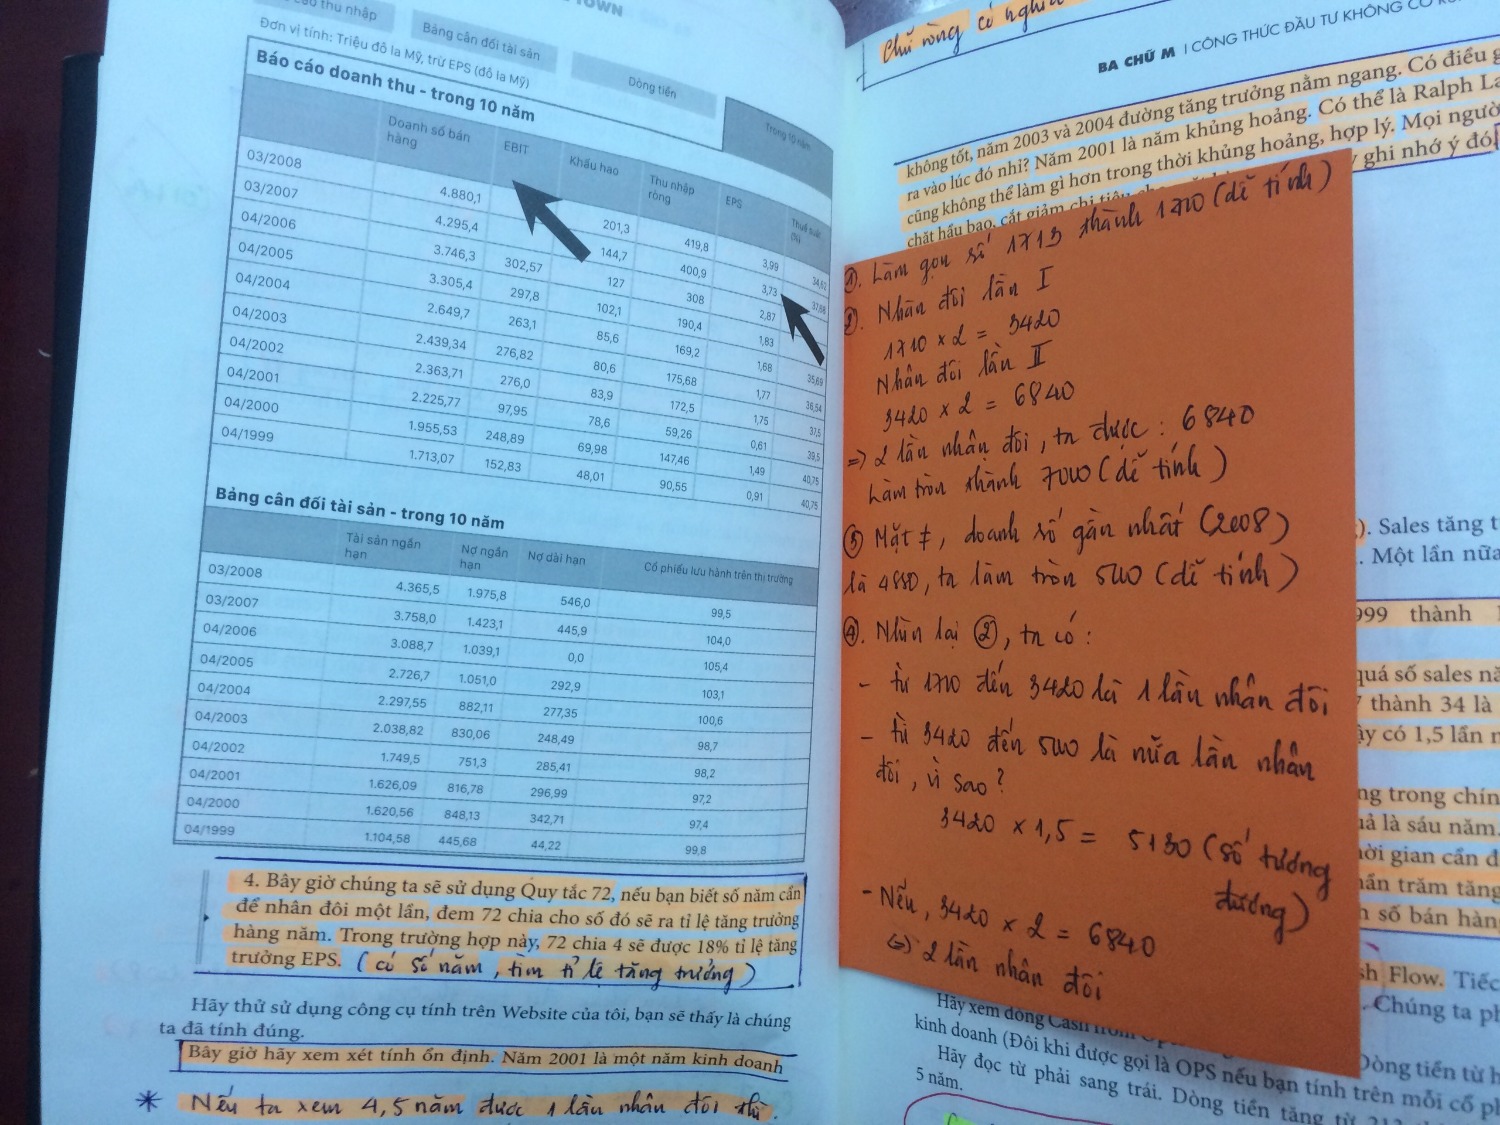 TOWN
thu nhập
Bảng cân đối tài sản
Dòng tiền
Trong 10 năm
Đơn vị tính: Triệu đô la Mỹ, trừ EPS (đô la Mỹ)
Báo cáo doanh thu - trong 10 năm
Doanh số bán hàng EBIT Khấu hao Thu nhập ròng EPS Thuế suất (%)
03/2008 4.880,1 201,3 419,8 3,99 34,62
03/2007 4.295,4 144,7 400,9 3,73
04/2006 3.746,3 302,57 127 308 2,87
04/2005 3.305,4 297,8 102,1 190,4 1,83 35,69
04/2004 2.649,7 263,1 85,6 169,2 1,68 36,54
04/2003 2.439,34 276,82 80,6 175,68 1,77 37,5
04/2002 2.363,71 276,0 83,9 172,5 1,75 39,5
04/2001 2.225,77 97,95 78,6 59,26 0,61 40,75
04/2000 1.955,53 248,89 69,98 147,46 1,49 40,75
04/1999 1.713,07 152,83 48,01 90,55 0,91
Bảng cân đối tài sản - trong 10 năm
Tài sản ngắn hạn Nợ ngắn hạn Nợ dài hạn Cổ phiếu lưu hành trên thị trường
03/2008 4.365,5 1.975,8 546,0 99,5
03/2007 3.758,0 1.423,1 445,9 104,0
04/2006 3.088,7 1.039,1 0,0 105,4
04/2005 2.726,7 1.051,0 292,9 103,1
04/2004 2.297,55 882,11 277,35 100,6
04/2003 2.038,82 830,06 248,49 98,7
04/2002 1.749,5 751,3 285,41 98,2
04/2001 1.626,09 816,78 296,99 97,2
04/2000 1.620,56 848,13 342,71 97,4
04/1999 1.104,58 445,68 44,22 99,8
4. Bây giờ chúng ta sẽ sử dụng Quy tắc 72, nếu bạn biết số năm cần
để nhân đôi một lần, đem 72 chia cho số đó sẽ ra tỉ lệ tăng trưởng
hàng năm. Trong trường hợp này, 72 chia 4 sẽ được 18% tỉ lệ tăng
trưởng EPS. (có số năm, tìm tỉ lệ tăng trưởng)
Hãy thử sử dụng công cụ tính trên Website của tôi, bạn sẽ thấy là chúng
ta đã tính đúng.
Bây giờ hãy xem xét tính ổn định. Năm 2001 là một năm kinh doanh
* Nếu ta xem 4,5 năm được 1 lần nhân đôi thì
BA CHỮ M | CÔNG THỨC ĐẦU TƯ KHÔNG CÓ
không tốt, năm 2003 và 2004 đường tăng trưởng nằm ngang. Có điều
ra vào lúc đó nhỉ? Năm 2001 là năm khủng hoảng. Có thể là Ralph
cũng không thể làm gì hơn trong thời khủng hoảng, hợp lý. Mọi
chặt hầu bao, cắt giảm chi ghi nhớ ý đó
①. Làm gọn số 1713 thành 1710 (dễ tính)
②. Nhân đôi lần I
1710 x 2 = 3420
Nhân đôi lần II
3420 x 2 = 6840
=> 2 lần nhân đôi, ta được: 6840
Làm tròn thành 7000 (dễ tính)
③ Mặt ≠, doanh số gần nhất (2008)
là 4880, ta làm tròn 5000 (dễ tính)
④. Nhìn lại ②, ta có:
- từ 1710 đến 3420 là 1 lần nhân đôi
- từ 3420 đến 5000 là nữa lần nhân
đôi, vì sao?
3420 x 1,5 = 5130 (số tương
đương)
- Nếu, 3420 x 2 = 6840
(=) 2 lần nhân đôi
). Sales tăng
. Một lần nữa
999 thành
quá số sales
7 thành 34 là
có 1,5 lần
trong chín
là sáu năm.
thời gian cần
trăm tăng
số bán hàng
Flow. Tiếc
. Chúng ta
Hãy xem dòng Cash from
kinh doanh (Đôi khi được gọi là OPS nếu bạn tính trên mỗi cổ
Hãy đọc từ phải sang trái. Dòng tiền tăng từ
5 năm.